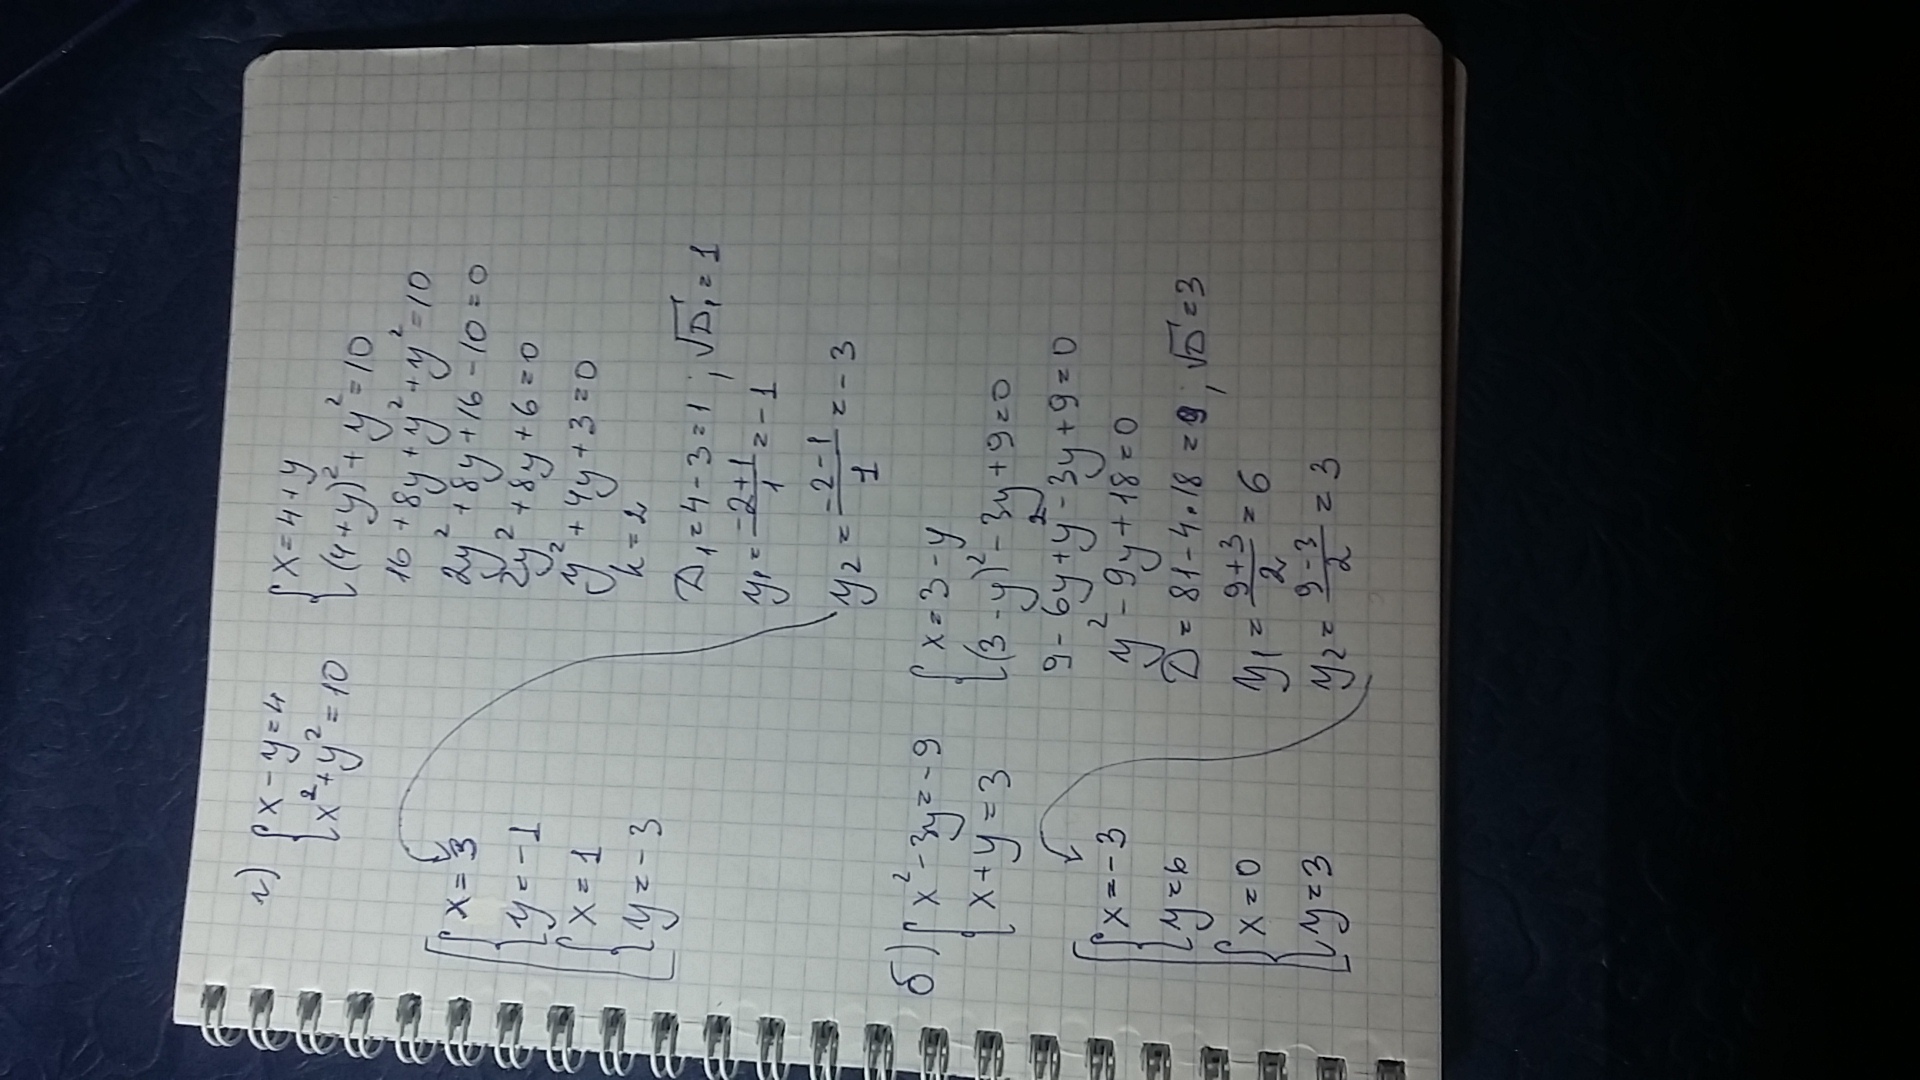 г) { x - y = 4
{ x² + y² = 10
{ x = 4 + y
{ (4 + y)² + y² = 10
16 + 8y + y² + y² = 10
2y² + 8y + 16 - 10 = 0
2y² + 8y + 6 = 0
y² + 4y + 3 = 0
k = 2
D₁ = 4 - 3 = 1 ; √D₁ = 1
y₁ = (-2 + 1)/1 = -1
y₂ = (-2 - 1)/1 = -3
[ { x = 3
{ y = -1
{ x = 1
{ y = -3
б) { x² - 3y = -9
{ x + y = 3
{ x = 3 - y
{ (3 - y)² - 3y + 9 = 0
9 - 6y + y² - 3y + 9 = 0
y² - 9y + 18 = 0
D = 81 - 4·18 = 9 ; √D = 3
y₁ = (9 + 3)/2 = 6
y₂ = (9 - 3)/2 = 3
[ { x = -3
{ y = 6
{ x = 0
{ y = 3